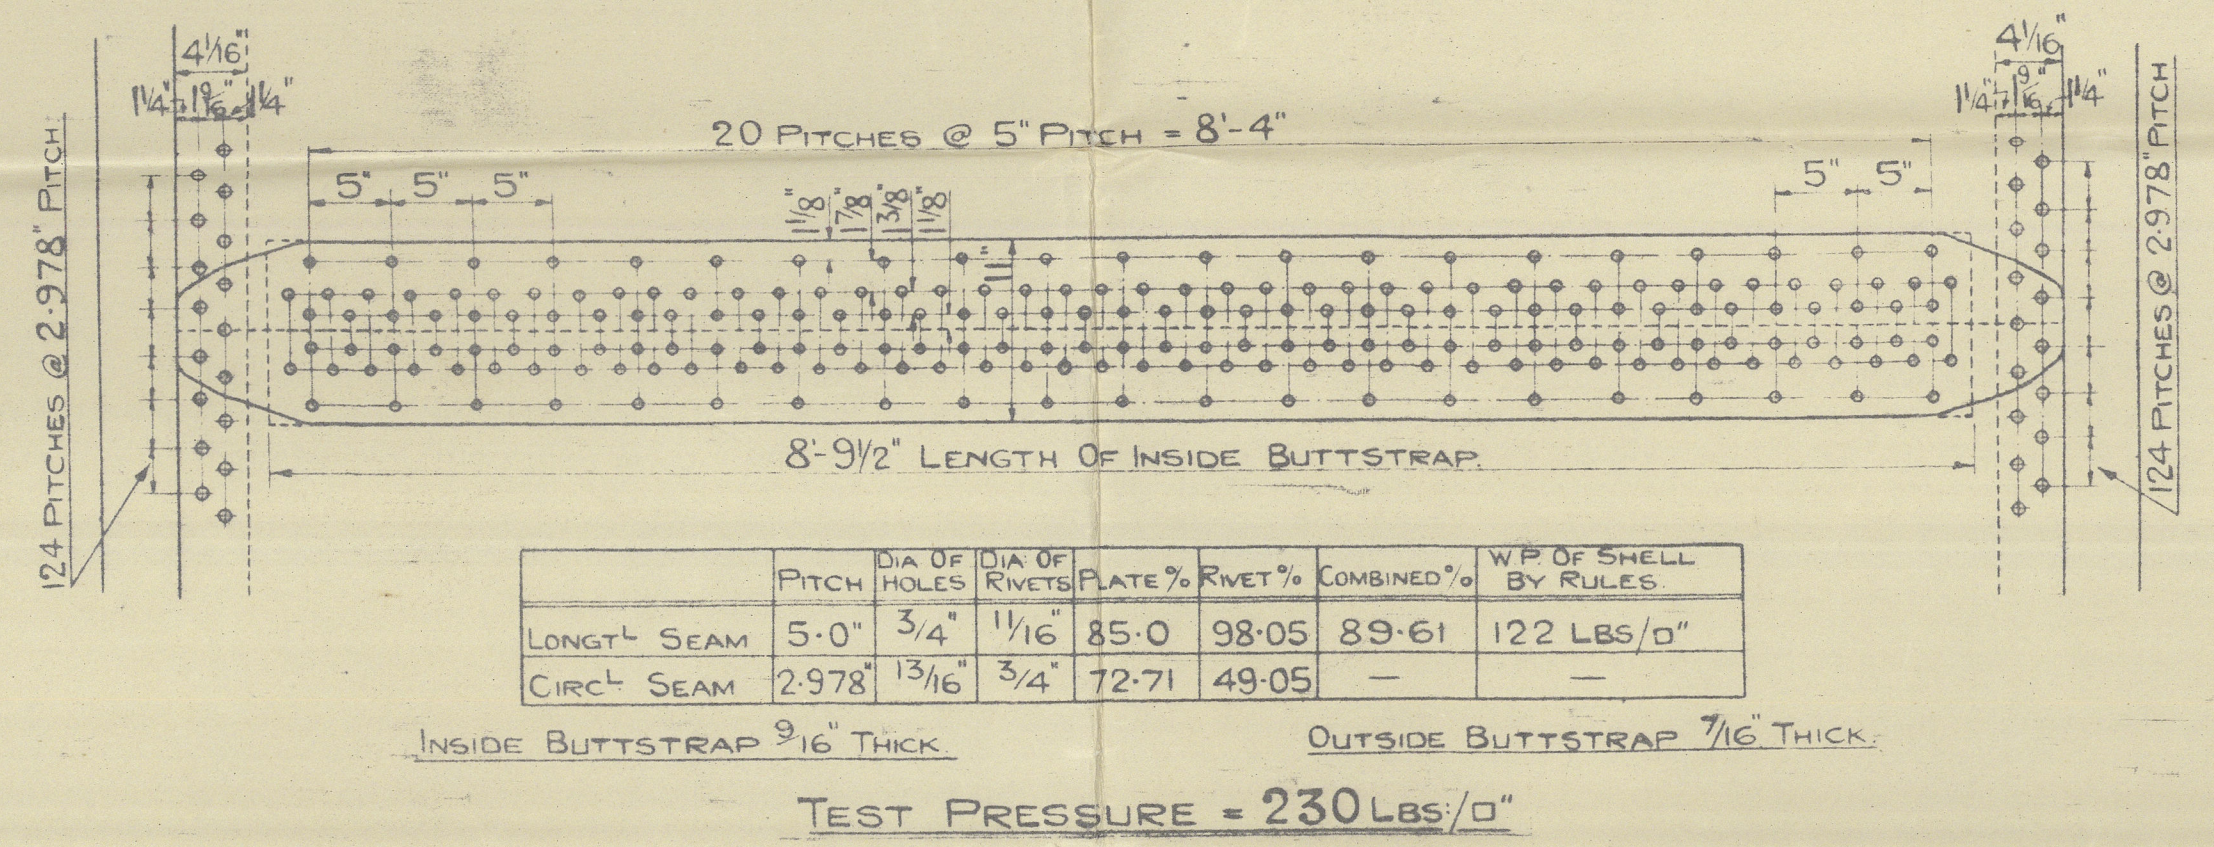 4 1/16" 4 1/16"
1 1/4" 1 9/16" 1 1/4" 1 1/4" 1 9/16" 1 1/4"
20 PITCHES @ 5" PITCH = 8'-4"
5" 5" 5" 5" 5"
1 1/8" 1 7/8" 1 3/8" 1 1/8"
11"
124 PITCHES @ 2·978" PITCH
124 PITCHES @ 2·978" PITCH
8'-9 1/2" LENGTH OF INSIDE BUTTSTRAP.
PITCH DIA OF HOLES DIA: OF RIVETS PLATE % RIVET % COMBINED % W.P. OF SHELL BY RULES.
LONGTL SEAM 5·0" 3/4" 11/16" 85·0 98·05 89·61 122 LBS/□"
CIRCL. SEAM 2·978" 13/16" 3/4" 72·71 49·05 — —
INSIDE BUTTSTRAP 9/16" THICK. OUTSIDE BUTTSTRAP 7/16" THICK.
TEST PRESSURE = 230 LBS:/□"